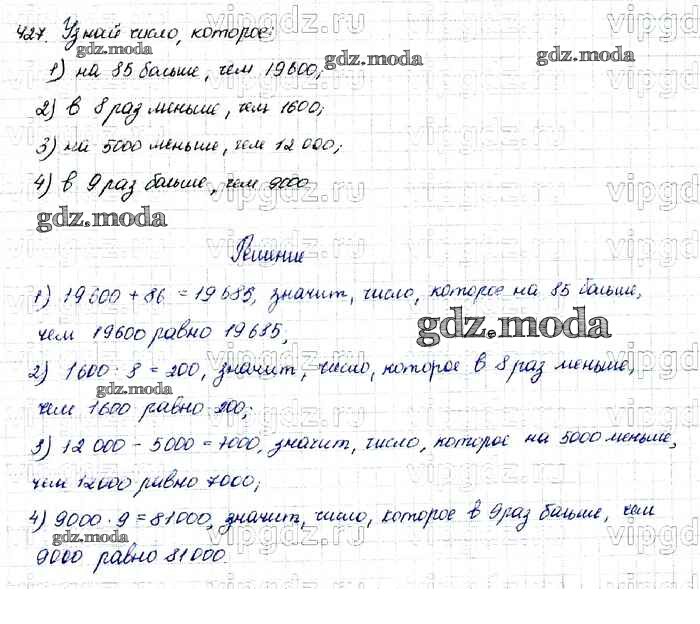 427. Узнай число, которое:
1) на 85 больше, чем 19600;
2) в 8 раз меньше, чем 1600;
3) на 5000 меньше, чем 12 000;
4) в 9 раз больше, чем 9000.
Решение
1) 19600 + 86 = 19685, значит, число, которое на 85 больше,
чем 19600 равно 19685;
2) 1600 : 8 = 200, значит, число, которое в 8 раз меньше,
чем 1600 равно 200;
3) 12 000 - 5000 = 7000, значит, число, которое на 5000 меньше,
чем 12000 равно 7000;
4) 9000 · 9 = 81000, значит, число, которое в 9 раз больше, чем
9000 равно 81000.
gdz.moda
gdz.moda
gdz.moda
gdz.moda
gdz.moda
gdz.moda
gdz.moda